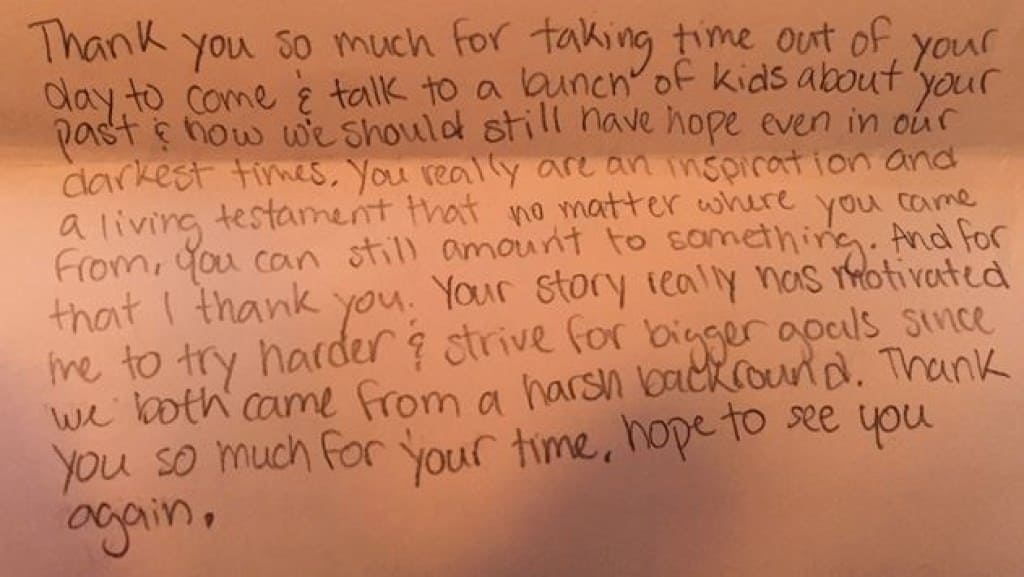 Thank you so much for taking time out of your
day to come & talk to a bunch of kids about your
past & how we should still have hope even in our
darkest times. You really are an inspiration and
a living testament that no matter where you came
from, you can still amount to something. And for
that I thank you. Your story really has motivated
me to try harder & strive for bigger goals since
we both came from a harsh backround. Thank
you so much for your time, hope to see you
again.